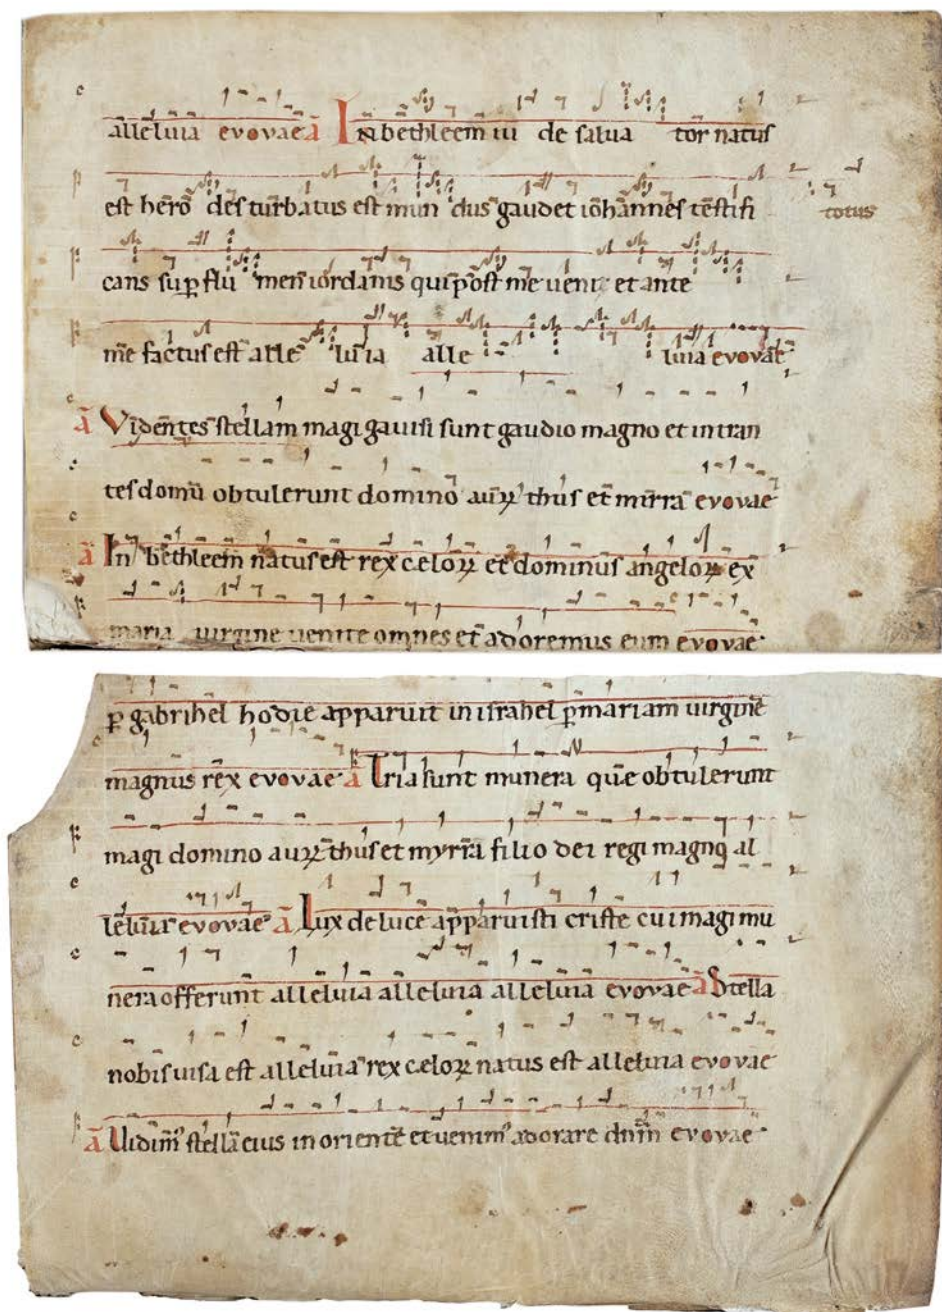 alleluia evovae ā In bethleem iu de salua tor natus
est hero des turbatus est mun dus gaudet iohannes testifi totus
cans sup flu men iordanis qui post me uenit et ante
me factus est alle lu ia alle luia evovae
ā Videntes stellam magi gauisi sunt gaudio magno et intran
tes domū obtulerunt domino auꝝ thus et mirra evovae
ā In bethleem natus est rex cęloꝝ et dominus angeloꝝ ex
maria uirgine uenite omnes et adoremus eum evovae
ꝑ gabrihel hodie apparuit in israhel ꝑ mariam uirginē
magnus rex evovae ā Tria sunt munera quę obtulerunt
magi domino auꝝ thus et myrra filio dei regi magno al
leluia evovae ā Lux de luce apparuisti criste cui magi mu
nera offerunt alleluia alleluia alleluia evovae ā Stella
nobis uisa est alleluia rex cęloꝝ natus est alleluia evovae
ā Uidim᾽ stellā eius in oriente et uenim᾽ adorare dn̄m evovae